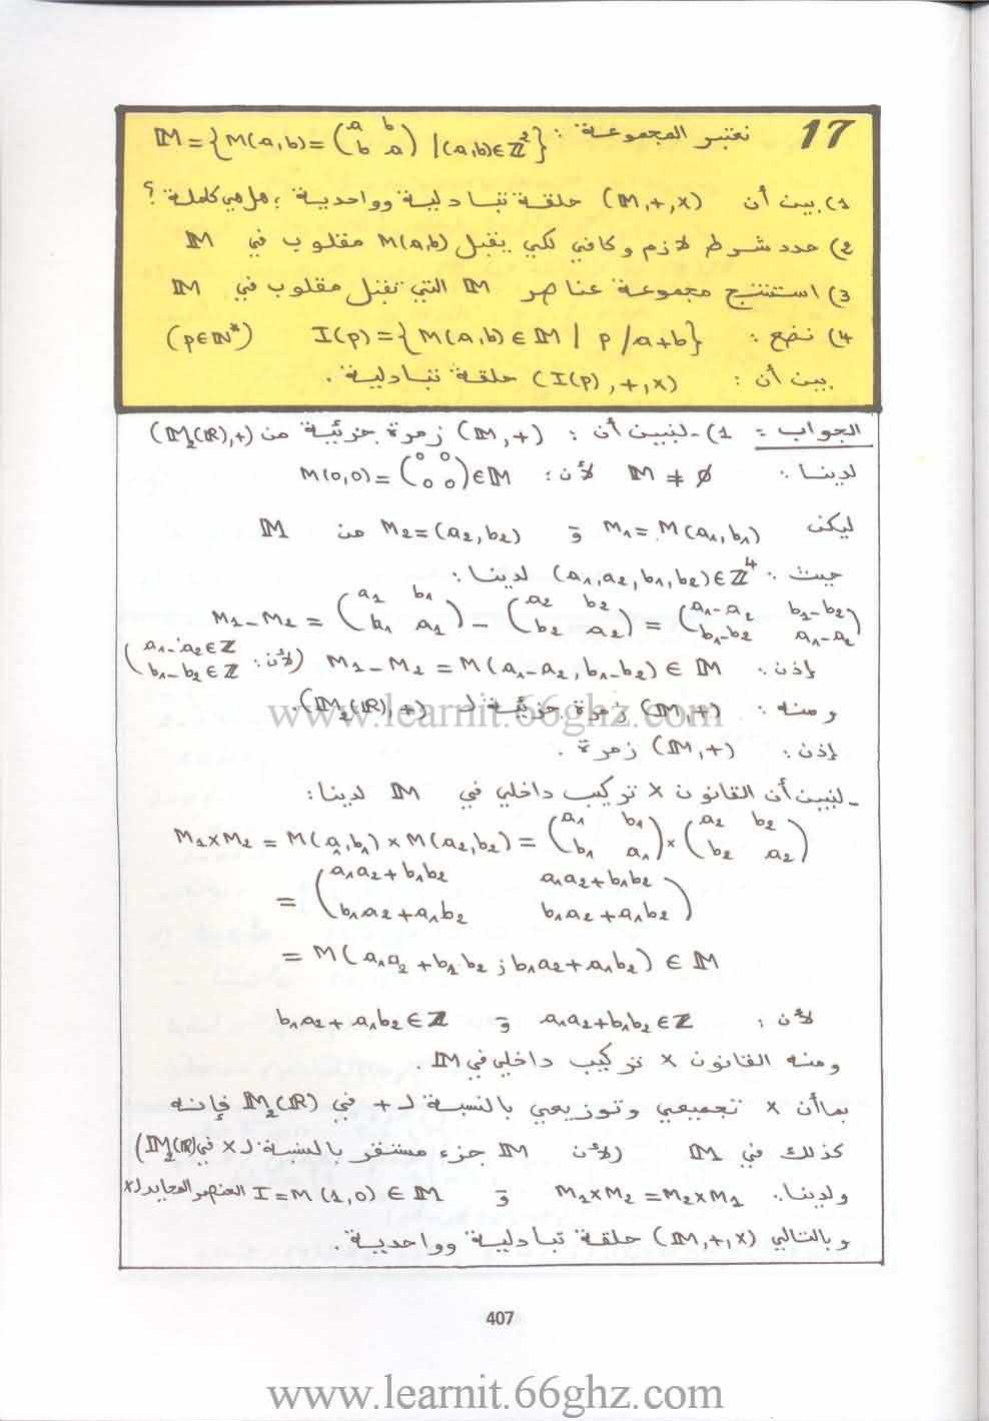 17 نعتبر المجموعة : IM = { M(a,b) = (a b / b a) | (a,b)∈ℤ² }
1) بين أن (IM,+,×) حلقة تبادلية وواحدية ، هل هي كاملة ؟
2) حدد شرط لازم وكافي لكي يقبل M(a,b) مقلوب في IM
3) استنتج مجموعة عناصر IM التي تقبل مقلوب في IM
4) نضع : I(p) = { M(a,b) ∈ IM | p / a+b } (p∈ℕ*)
بين أن : (I(p),+,×) حلقة تبادلية .
الجواب = 1) - لنبين أن : (IM,+) زمرة جزئية من (IM₂(ℝ),+)
لدينا : IM ≠ ∅ لأن : M(0,0) = (0 0 / 0 0) ∈ IM
ليكن M₁ = M(a₁,b₁) و M₂ = (a₂,b₂) من IM
حيث : (a₁,a₂,b₁,b₂) ∈ ℤ⁴ لدينا :
M₁ - M₂ = (a₁ b₁ / b₁ a₁) - (a₂ b₂ / b₂ a₂) = (a₁-a₂ b₁-b₂ / b₁-b₂ a₁-a₂)
إذن : M₁ - M₂ = M(a₁-a₂, b₁-b₂) ∈ IM (لأن : a₁-a₂∈ℤ / b₁-b₂∈ℤ)
ومنه : (IM,+) زمرة جزئية لـ (IM₂(ℝ),+).
www.learnit.66ghz.com
إذن : (IM,+) زمرة .
- لنبين أن القانون × تركيب داخلي في IM لدينا :
M₁×M₂ = M(a₁,b₁) × M(a₂,b₂) = (a₁ b₁ / b₁ a₁) × (a₂ b₂ / b₂ a₂)
= (a₁a₂+b₁b₂ a₁a₂+b₁b₂ / b₁a₂+a₁b₂ b₁a₂+a₁b₂)
= M(a₁a₂+b₁b₂ ; b₁a₂+a₁b₂) ∈ IM
لأن : a₁a₂+b₁b₂ ∈ ℤ و b₁a₂+a₁b₂ ∈ ℤ
ومنه القانون × تركيب داخلي في IM .
بما أن × تجميعي وتوزيعي بالنسبة لـ + في IM₂(ℝ) فإنه
كذلك في IM (لأن IM جزء مستقر بالنسبة لـ × في IM₂(ℝ))
ولدينا : M₁×M₂ = M₂×M₁ و I = M(1,0) ∈ IM العنصر المحايد لـ ×
وبالتالي (IM,+,×) حلقة تبادلية وواحدية .
407
www.learnit.66ghz.com